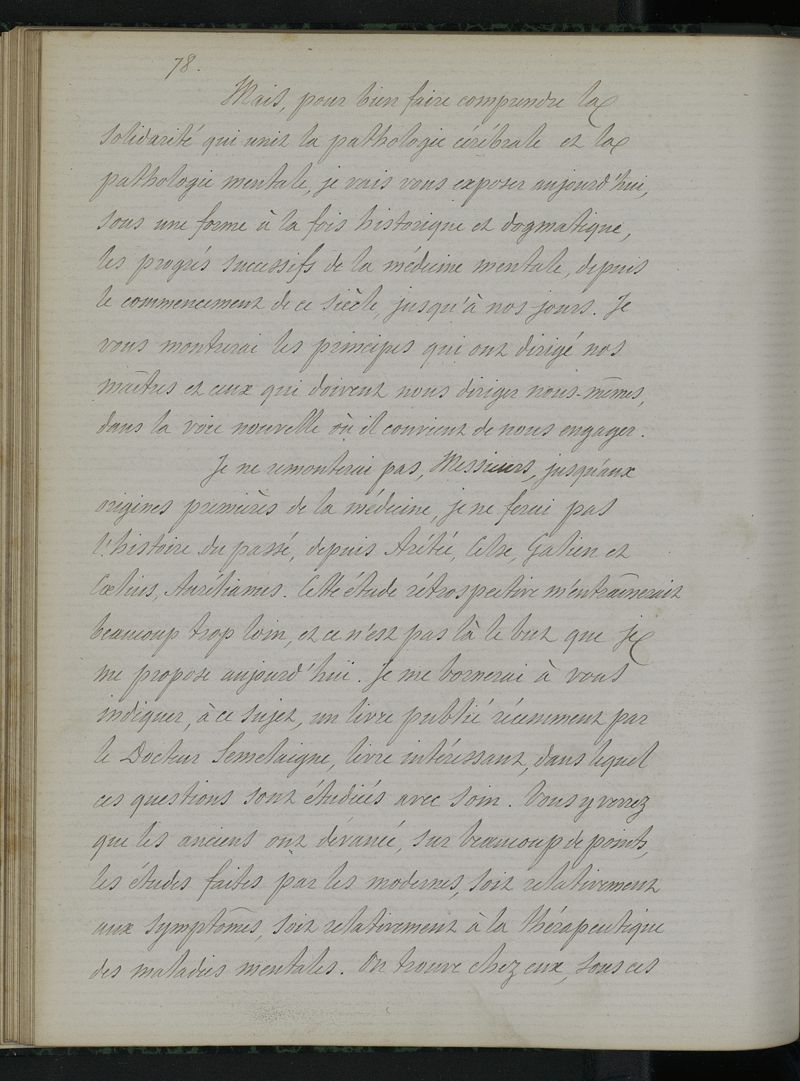 78.
Mais, pour bien faire comprendre la
solidarité qui unit la pathologie cérébrale et la
pathologie mentale, je vais vous exposer aujourd'hui,
sous une forme à la fois historique et dogmatique,
les progrès successifs de la médecine mentale, depuis
le commencement de ce siècle, jusqu'à nos jours. Je
vous montrerai les principes qui ont dirigé nos
maîtres et ceux qui doivent nous diriger nous-mêmes,
dans la voie nouvelle où il convient de nous engager.
Je ne remonterai pas, Messieurs, jusqu'aux
origines premières de la médecine, je ne ferai pas
l'histoire du passé, depuis Arétée, Celse, Galien et
Cœlius, Aurélianus. Cette étude rétrospective m'entraînerait
beaucoup trop loin, et ce n'est pas là le but que je
me propose aujourd'hui. Je me bornerai à vous
indiquer, à ce sujet, un livre publié récemment par
le Docteur Semelaigne, livre intéressant, dans lequel
ces questions sont étudiées avec soin. Vous y verrez
que les anciens ont dévancé, sur beaucoup de points,
les études faites par les modernes, soit relativement
aux symptômes, soit relativement à la thérapeutique
des maladies mentales. On trouve chez eux, sous ces